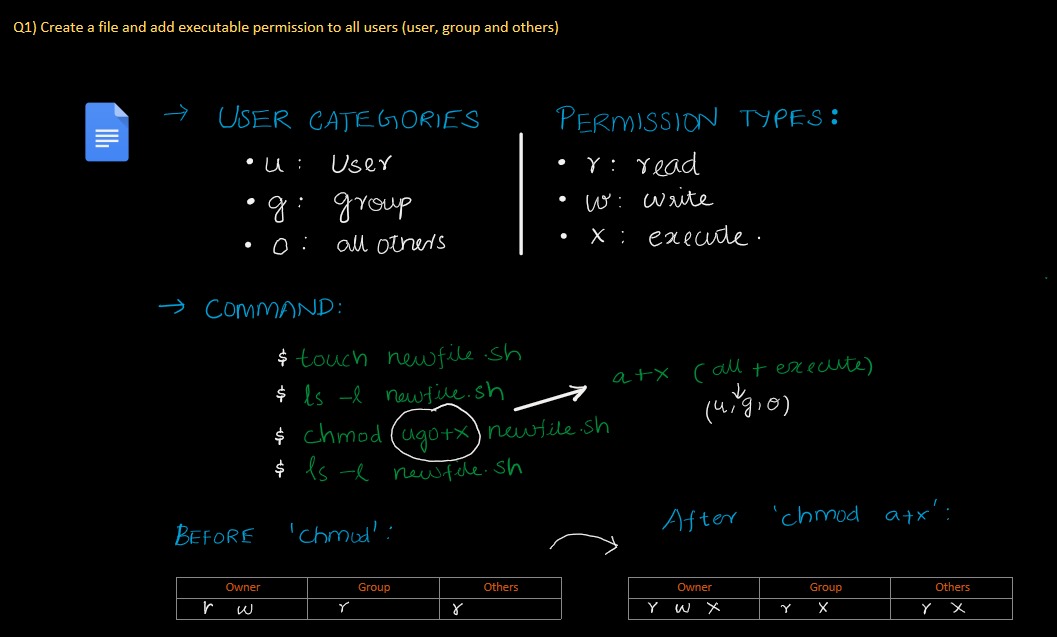 Q1) Create a file and add executable permission to all users (user, group and others)
→ USER CATEGORIES
• u : User
• g : group
• o : all others
PERMISSION TYPES :
• r : read
• w : write
• x : execute .
→ COMMAND :
$ touch newfile.sh
$ ls -l newfile.sh
$ chmod ugo+x newfile.sh
$ ls -l newfile.sh
a+x (all + execute)
(u,g,o)
BEFORE 'chmod' :
Owner Group Others
r w r r
After 'chmod a+x' :
Owner Group Others
r w x r x r x